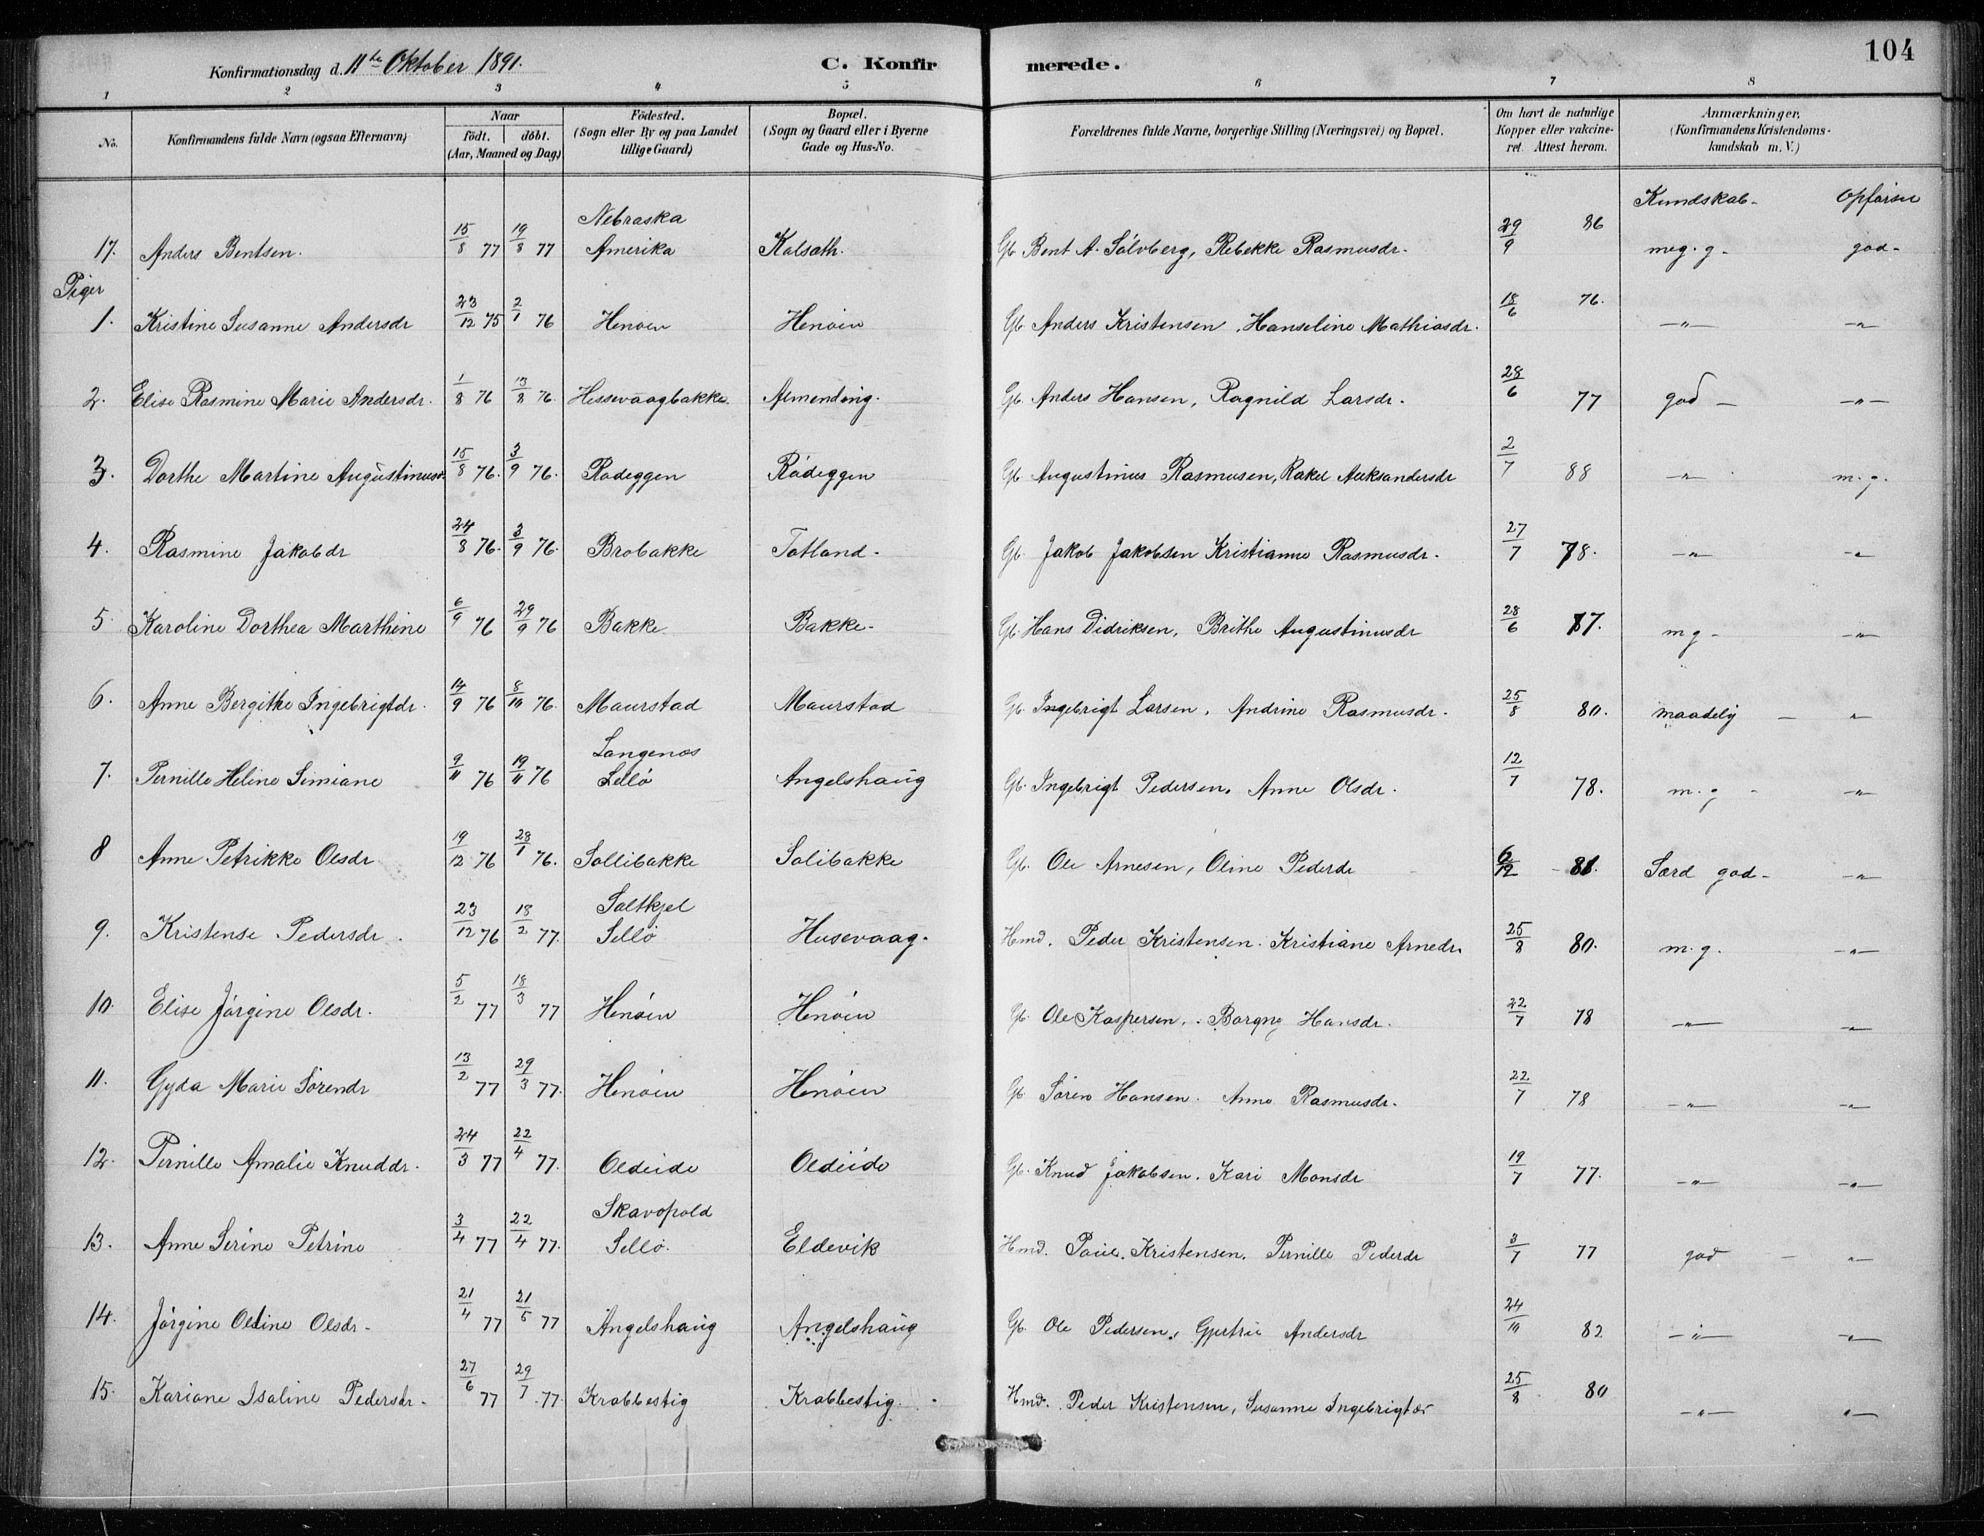 104
Konfirmationsdag d. 11te Oktober 1891.
C. Konfirmerede.
1 2 3 4 5 6 7 8
No. Konfirmandens fulde Navn (ogsaa Efternavn) Naar födt. döbt. (Aar, Maaned og Dag) Födested. (Sogn eller By og paa Landet tillige Gaard) Bopæl. (Sogn og Gaard eller i Byerne Gade og Hus-No. Forældrenes fulde Navne, borgerlige Stilling (Næringsvei) og Bopæl. Om havt de naturlige Kopper eller vakcineret. Attest herom. Anmærkninger. (Konfirmandens Kristendomskundskab m. V.)
Kundskab- Opførsel
17. Anders Bentsen. 15/8 77 19/8 77 Nebraska Amerika Kalsath. Gb. Bent A. Sølvberg, Rebekke Rasmusdr. 29/9 86 meg. g- god-
Piger
1. Kristine Susanne Andersdr 23/12 75 2/1 76 Henøen Henøen Gb. Anders Kristensen, Hanseline Mathiasdr. 18/6 76. -"- -"-
2. Elise Rasmine Marie Andersdr. 1/8 76 13/8 76. Hessevaagbakke. Almending. Gb. Anders Hansen, Ragnild Larsdr. 28/6 77 god - -"-
3. Dorthe Martine Augustinusdr 15/8 76. 3/9 76. Rødeggen Rødeggen Gb. Augustinus Rasmusen, Rakel Aleksandersdr 2/7 88 -"- m. g.
4. Rasmine Jakobdr 24/8 76. 3/9 76. Brobakke Totland. Gb. Jakob Jakobsen Kristianne Rasmusdr. 27/7 78. -"- -"-
5. Karoline Dorthea Marthine 6/9 76 29/9 76 Bakke Bakke. Gb. Hans Didriksen, Brithe Augustinusdr 28/6 87. m g- -"-
6. Anne Bergithe Ingebrigtdr. 14/9 76 8/10 76. Maurstad Maurstad Gb. Ingebrigt Larsen, Andrine Rasmusdr. 25/8 80. maadelig - -"-
7. Pernille Heline Simiane 9/11 76 19/11 76 Langenæs Sellø Angelshaug Gb. Ingebrigt Pedersen, Anne Olsdr. 12/7 78. m. g - -"-
8 Anne Petrikke Olsdr. 19/12 76 28/1 76. Sollibakke Solibakke Gb. Ole Arnesen, Oline Pederdr 6/12 81. Særd god- -"-
9. Kristense Pedersdr. 23/12 76 18/2 77. Saltkjel Sellø Husevaag. Hmd. Peder Kristensen. Kristiane Arnedr. 25/8 80. m. g. -"-
10. Elise Jørgine Olsdr. 5/2 77 18/3 77 Henøen Henøen Gb. Ole Kaspersen, Borgny Hansdr. 22/7 78 -"- -"-
11. Gyda Marie Sørendr 13/2 77 29/3 77. Henøen Henøen Gb. Søren Hansen. Anne Rasmusdr. 22/7 78 -"- -"-
12. Pernille Amalie Knuddr. 24/3 77 22/4 77. Oldeide Oldeide Gb. Knud Jakobsen. Kari Monsdr 19/7 77. -"- -"-
13. Anne Serine Petrine 3/4 77 22/4 77. Skavøpold Sellø. Eldevik Hmd. Poul Kristensen, Pernille Pederdr 3/7 77 god - -"-
14. Jørgine Oline Olsdr- 21/4 77 21/5 77 Angelshaug Angelshaug Gb. Ole Pedersen, Gjertrie Andersdr 24/10 82 -"- -"-
15. Kariane Isaline Pedersdr. 27/6 77 29/7 77. Krabbestig Krabbestig. Hmd. Peder Kristensen, Susanne Ingebrigtdr 25/8 80 -"- -"-